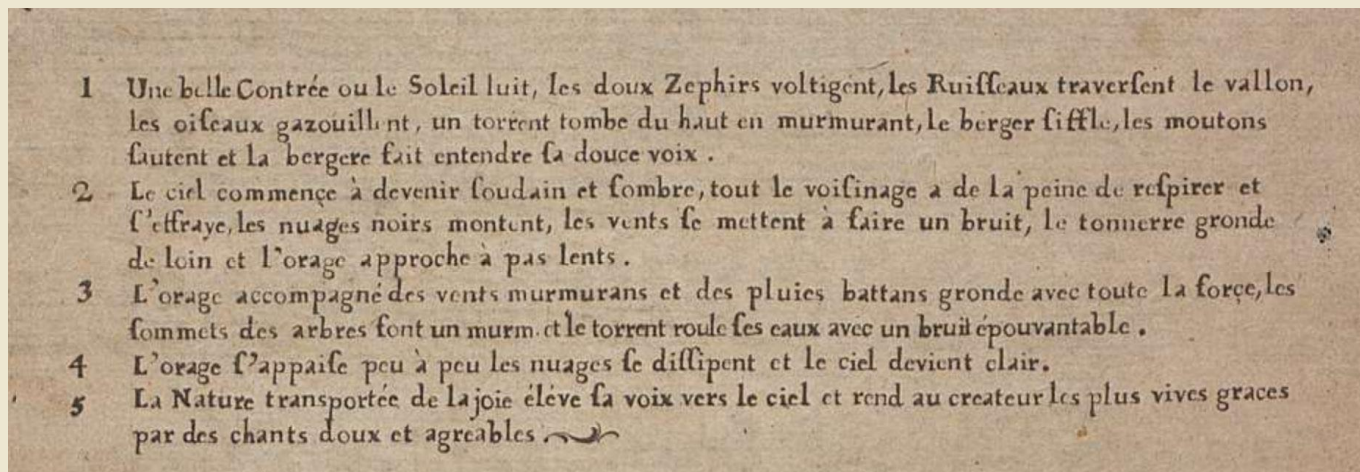 1 Une belle Contrée ou le Soleil luit, les doux Zephirs voltigent, les Ruiſſeaux traverſent le vallon,
les oiſeaux gazouillent, un torrent tombe du haut en murmurant, le berger ſiffle, les moutons
ſautent et la bergere fait entendre ſa douce voix.
2 Le ciel commençe à devenir ſoudain et ſombre, tout le voiſinage a de la peine de reſpirer et
ſ'effraye, les nuages noirs montent, les vents ſe mettent à faire un bruit, le tonnerre gronde
de loin et l'orage approche à pas lents.
3 L'orage accompagné des vents murmurans et des pluies battans gronde avec toute la forçe, les
ſommets des arbres font un murm. et le torrent roule ſes eaux avec un bruit épouvantable.
4 L'orage ſ'appaiſe peu à peu les nuages ſe diſſipent et le ciel devient clair.
5 La Nature transportée de la joie éléve ſa voix vers le ciel et rend au createur les plus vives graces
par des chants doux et agreables